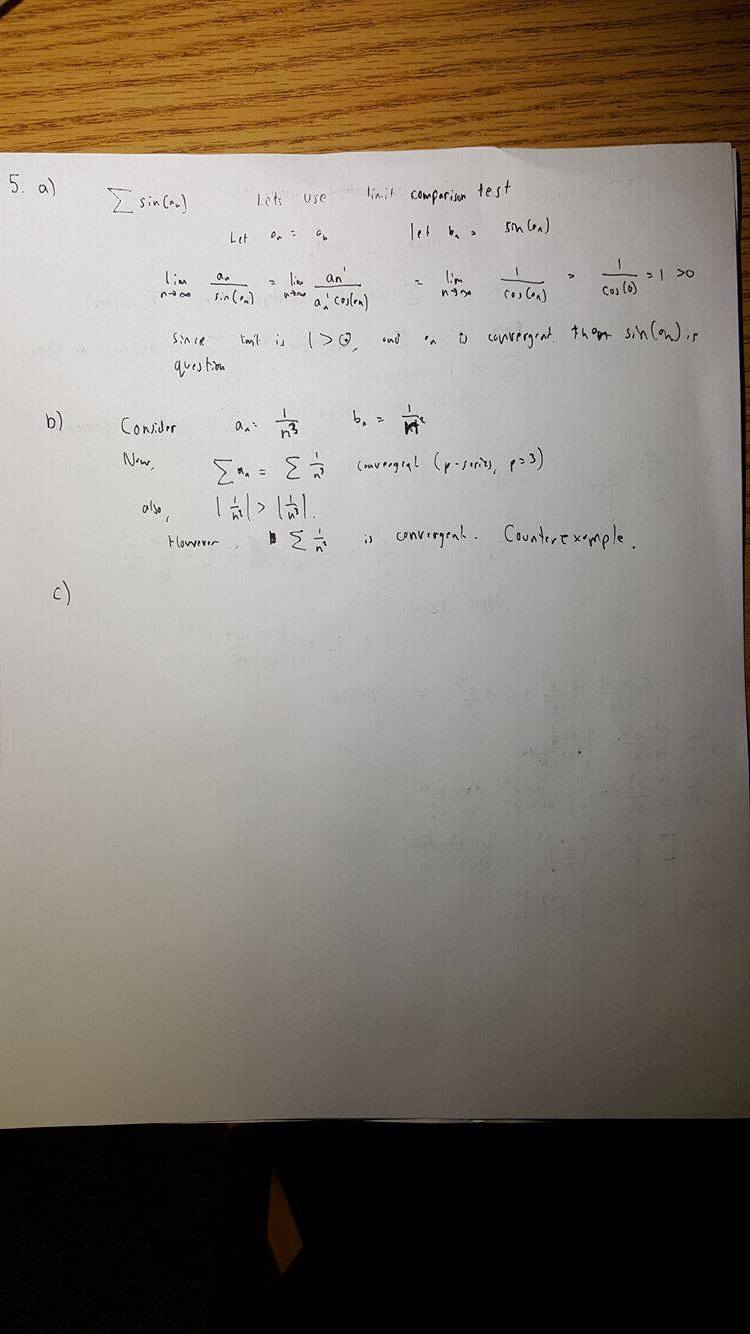 5. a) ∑ sin(aₙ) Lets use limit comparison test
Let aₙ = aₙ let bₙ = sin(aₙ)
lim n→∞ aₙ/sin(aₙ) = lim n→∞ aₙ'/aₙ' cos(aₙ) = lim n→∞ 1/cos(aₙ) = 1/cos(0) = 1 > 0
since limit is 1 > 0, and aₙ is convergent. then sin(aₙ) is
question
b) Consider aₙ = 1/n³ bₙ = 1/n²
Now, ∑ aₙ = ∑ 1/n³ convergent (p-series, p=3)
also, |1/n²| > |1/n³|.
However, ∑ 1/n² is convergent. Counterexample.
c)